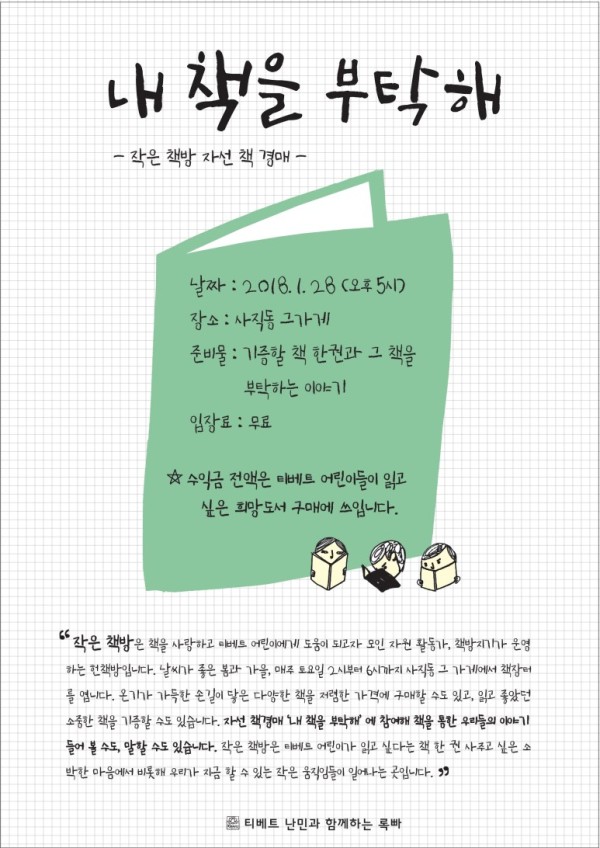 내 책을 부탁해
- 작은 책방 자선 책 경매 -
날짜 : 2018. 1. 28 (오후 5시)
장소 : 사직동 그가게
준비물 : 기증할 책 한권과 그 책을
부탁하는 이야기
입장료 : 무료
☆ 수익금 전액은 티베트 어린이들이 읽고
싶은 희망도서 구매에 쓰입니다.
“작은 책방은 책을 사랑하고 티베트 어린이에게 도움이 되고자 모인 자원 활동가, 책방지기가 운영
하는 헌책방입니다. 날씨가 좋은 봄과 가을, 매주 토요일 2시부터 6시까지 사직동 그 가게에서 책장터
를 엽니다. 온기가 가득한 손길이 닿은 다양한 책을 저렴한 가격에 구매할 수도 있고, 읽고 좋았던
소중한 책을 기증할 수도 있습니다. 자선 책경매 '내 책을 부탁해' 에 참여해 책을 통한 우리들의 이야기
들어 볼 수도, 말할 수도 있습니다. 작은 책방은 티베트 어린이가 읽고 싶다는 책 한 권 사주고 싶은 소
박한 마음에서 비롯해 우리가 지금 할 수 있는 작은 움직임들이 일어나는 곳입니다.”
티베트 난민과 함께하는 록빠